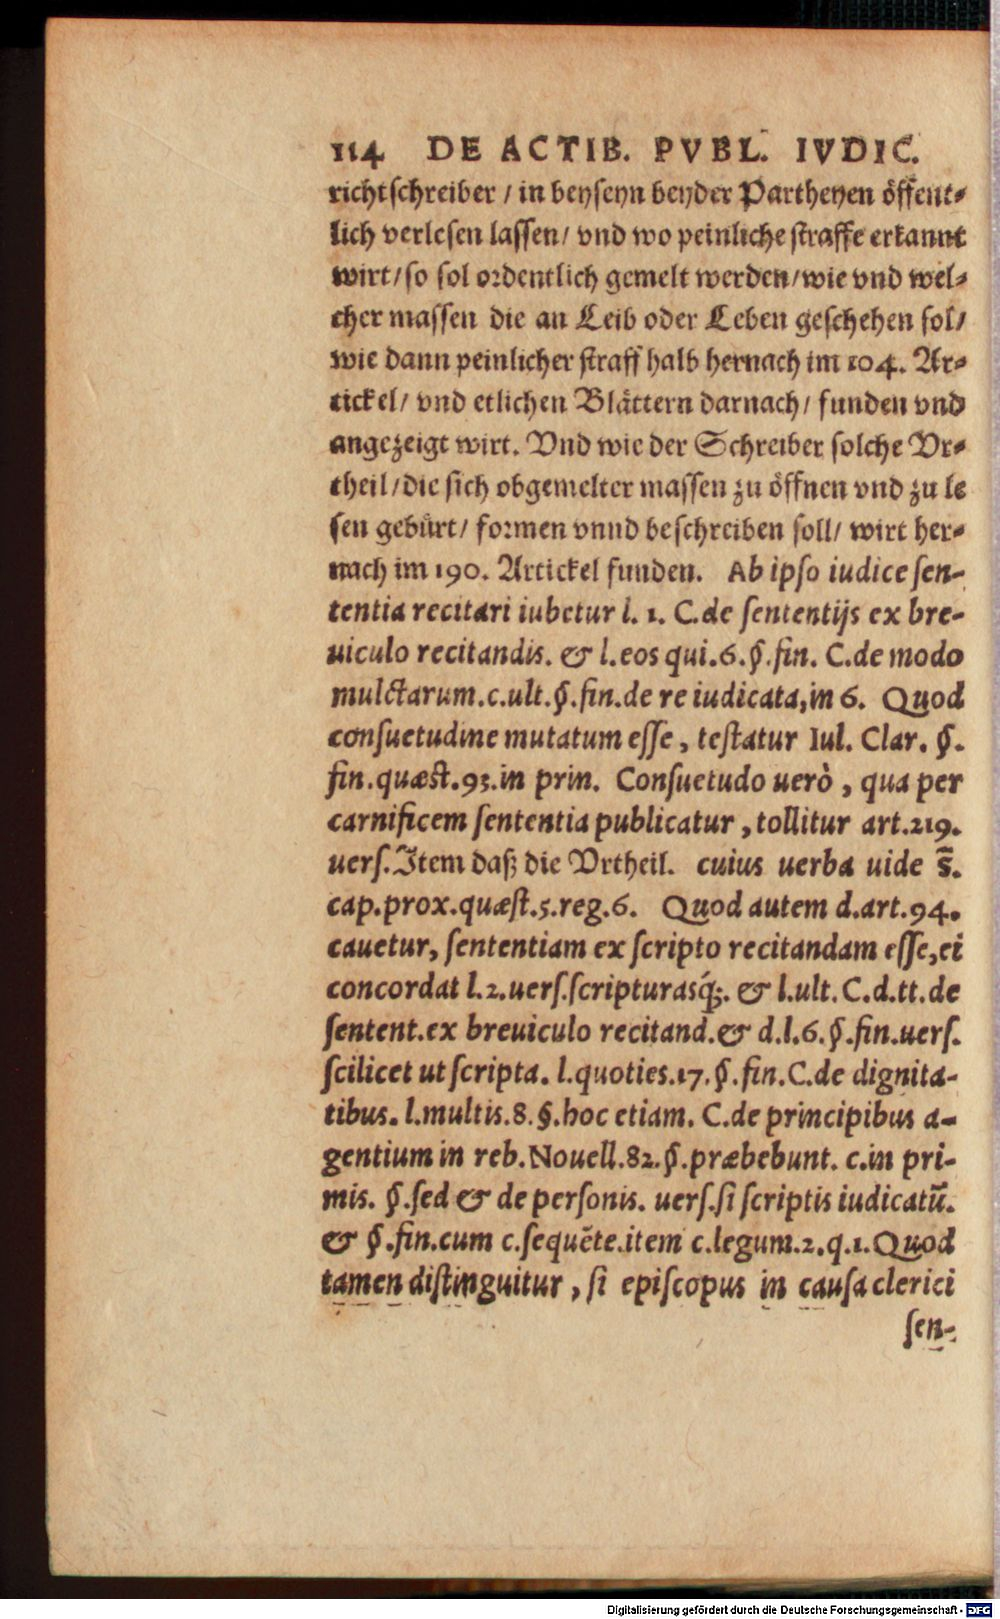 114 DE ACTIB. PVBL. IVDIC.
richtschreiber / in beyseyn beyder Partheyen öffent⸗
lich verlesen lassen/ vnd wo peinliche straffe erkannt
wirt/so sol ordentlich gemelt werden/wie vnd wel⸗
cher massen die an Leib oder Leben geschehen sol/
wie dann peinlicher straff halb hernach im 104. Ar⸗
tickel/ vnd etlichen Blättern darnach/ funden vnd
angezeigt wirt. Vnd wie der Schreiber solche Vr⸗
theil/die sich obgemelter massen zu öffnen vnd zu le
sen gebürt/ formen vnnd beschreiben soll/ wirt her⸗
nach im 190. Artickel funden. Ab ipso iudice sen-
tentia recitari iubetur l. 1. C.de sententijs ex bre-
uiculo recitandis. & l.eos qui.6.§.fin. C.de modo
mulctarum.c.ult.§.fin.de re iudicata,in 6. Quod
consuetudine mutatum esse, testatur Iul. Clar. §.
fin.quæst.93.in prin. Consuetudo uerò, qua per
carnificem sententia publicatur, tollitur art.219.
uers.Item daß die Vrtheil. cuius uerba uide s̄.
cap.prox.quæst.5.reg.6. Quod autem d.art.94.
cauetur, sententiam ex scripto recitandam esse,ei
concordat l.2.uers.scripturasq́;. & l.ult. C.d.tt.de
sentent.ex breuiculo recitand.& d.l.6.§.fin.uers.
scilicet ut scripta. l.quoties.17.§.fin.C.de dignita-
tibus. l.multis.8.§.hoc etiam. C.de principibus a-
gentium in reb.Nouell.82.§.præbebunt. c.in pri-
mis. §.sed & de personis. uers.si scriptis iudicatū.
& §.fin.cum c.sequēte.item c.legum.2.q.1.Quod
tamen distinguitur, si episcopus in causa clerici
sen-
Digitalisierung gefördert durch die Deutsche Forschungsgemeinschaft - DFG